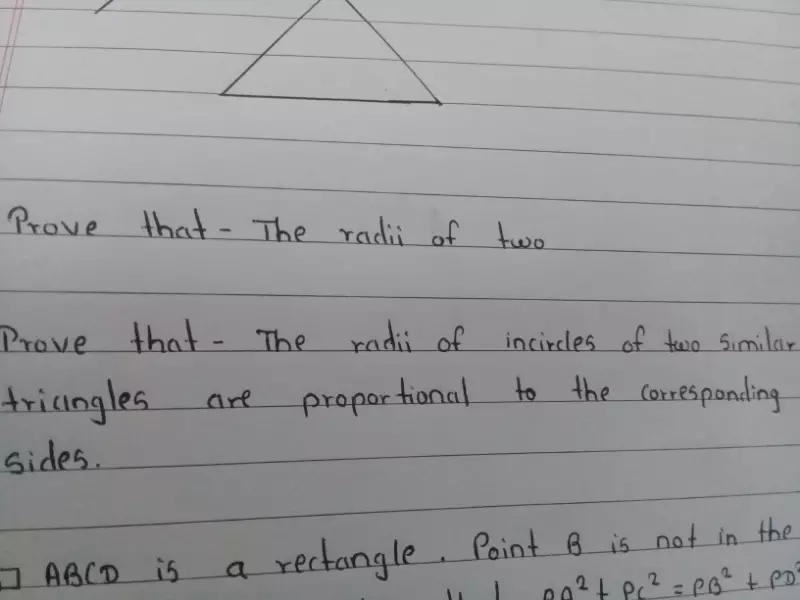 Prove that - The radii of two
Prove that - The radii of incircles of two similar
triangles are proportional to the corresponding
sides.
ABCD is a rectangle. Point B is not in the
PA² + PC² = PB² + PD²